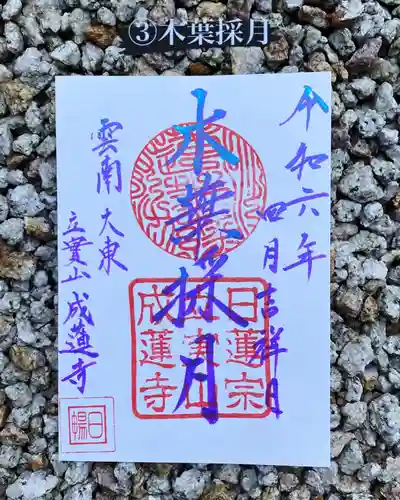 ③木葉採月
令和六年
四月吉祥日
木葉採月
雲南 大東
立實山 成蓮寺
日蓮宗
立実山
成蓮寺